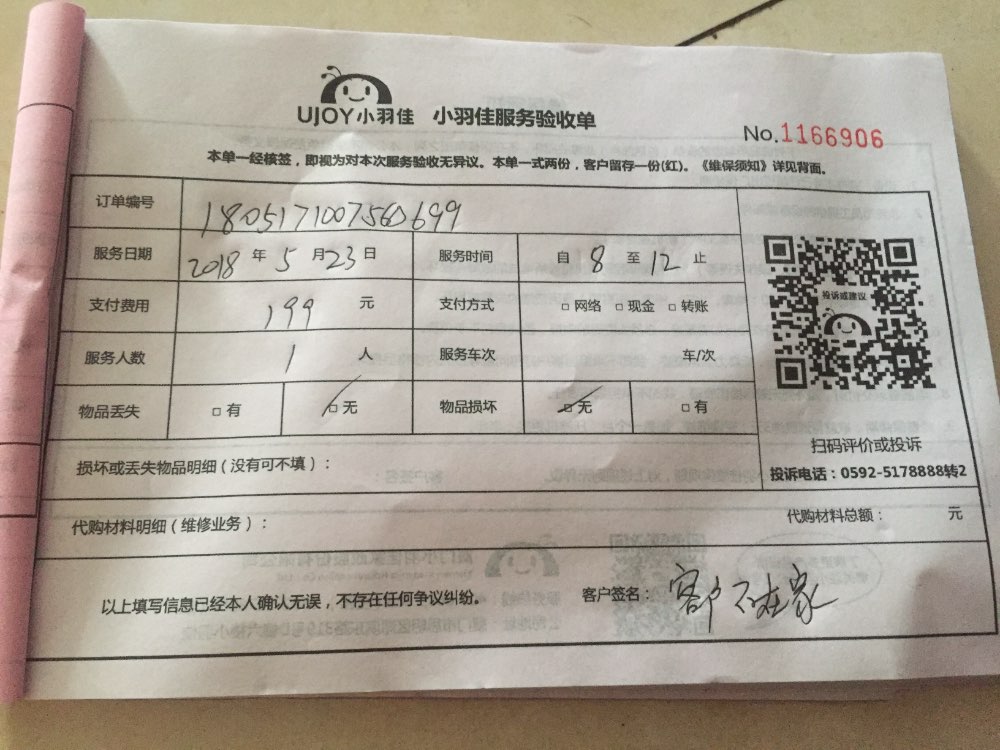 UJOY小羽佳 小羽佳服务验收单
No.1166906
本单一经核签，即视为对本次服务验收无异议。本单一式两份，客户留存一份(红)。《维保须知》详见背面。
订单编号 1805171007560699
服务日期 2018年5月23日 服务时间 自8至12止
支付费用 199元 支付方式 □网络 □现金 □转账
服务人数 1人 服务车次 车/次
投诉或建议
物品丢失 □有 □无 物品损坏 □无 □有
扫码评价或投诉
损坏或丢失物品明细（没有可不填）：
投诉电话：0592-5178888转2
代购材料明细（维修业务）： 代购材料总额： 元
以上填写信息已经本人确认无误，不存在任何争议纠纷。 客户签名：客户不在家